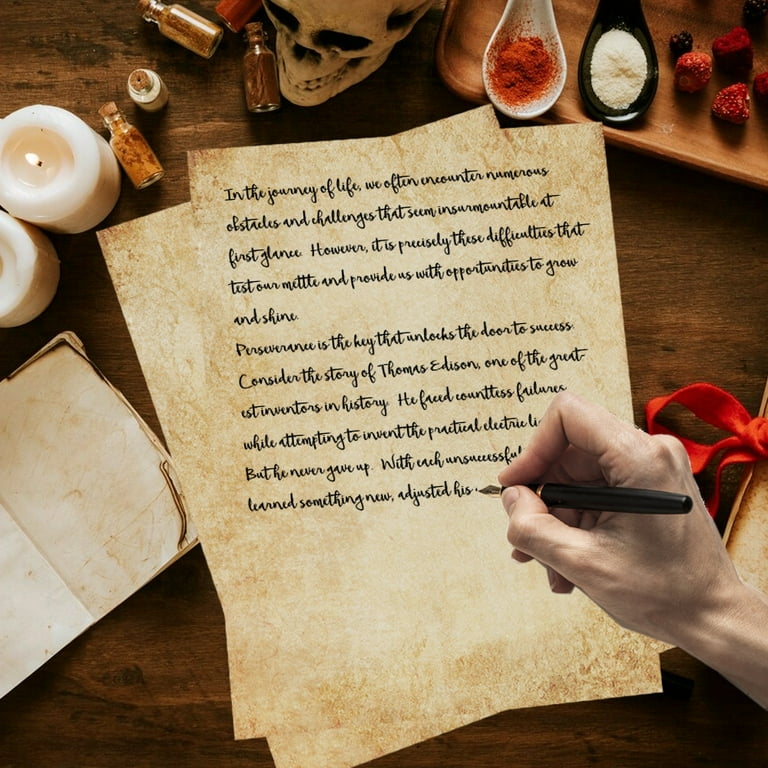 In the journey of life, we often encounter numerous
obstacles and challenges that seem insurmountable at
first glance. However, it is precisely these difficulties that
test our mettle and provide us with opportunities to grow
and shine.
Perseverance is the key that unlocks the door to success.
Consider the story of Thomas Edison, one of the great-
est inventors in history. He faced countless failures
while attempting to invent the practical electric
But he never gave up. With each unsuccessful
learned something new, adjusted his